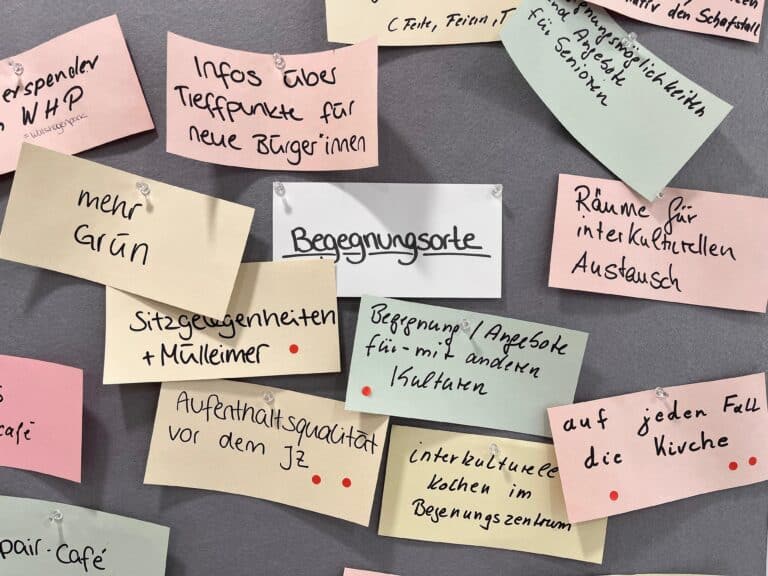 (Feste, Feiern, T
den Schafstall
erspender
WHP
Infos über
Treffpunkte für
neue Bürger*innen
Begegnungsmöglichkeiten
und Angebote
für
Senioren
mehr
Grün
Begegnungsorte
Räume für
interkulturellen
Austausch
Sitzgelegenheiten
+ Mülleimer
Begegnung / Angebote
für-mit anderen
Kulturen
café
Aufenthaltsqualität
vor dem JZ
interkulturelle
Kochen im
Begenungszentrum
auf jeden Fall
die Kirche
pair-Café